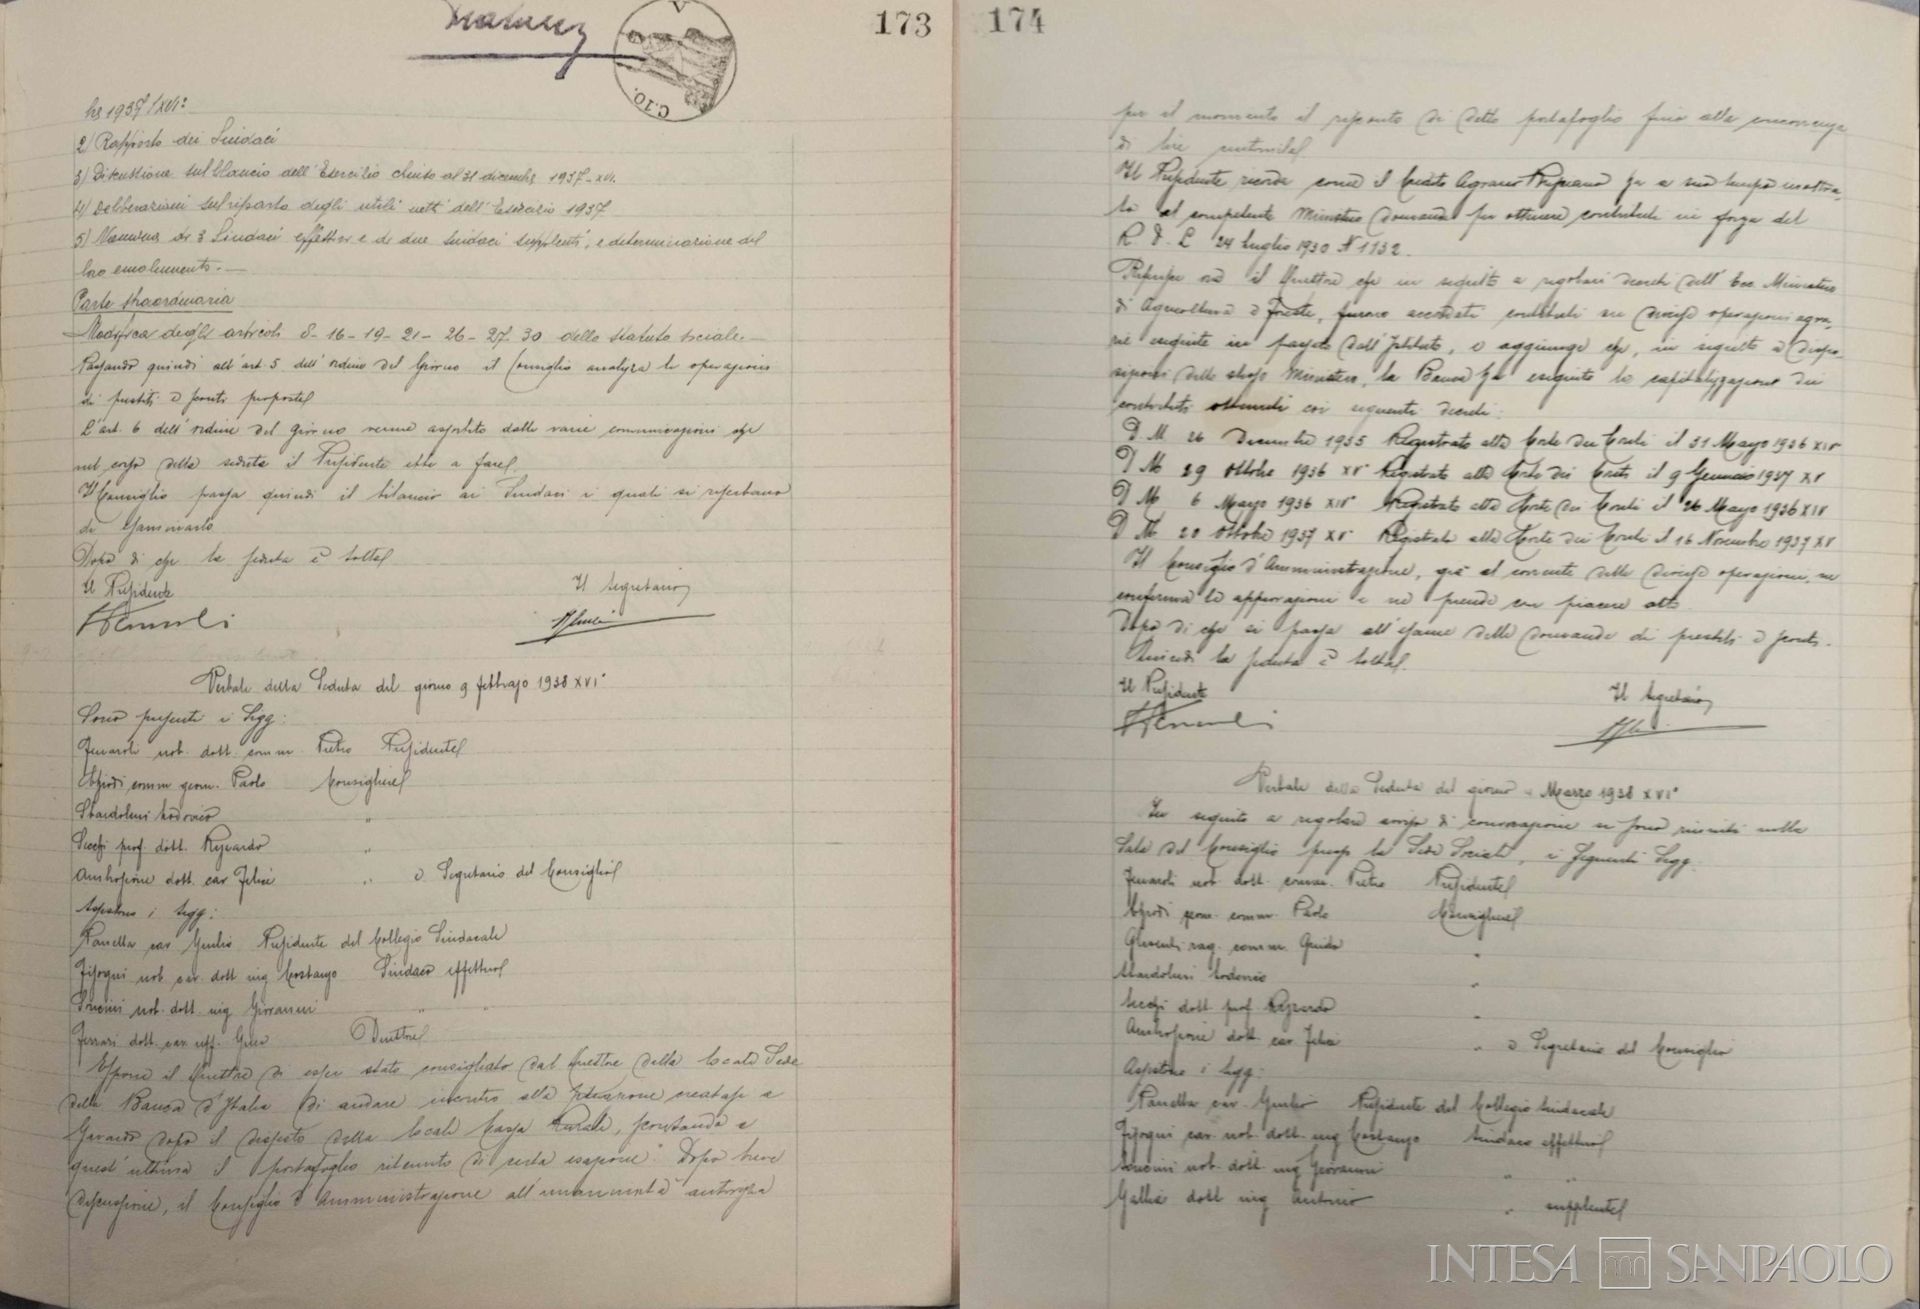 173
C.10.
bre 1937/XVI°
2) Rapporto dei Sindaci
3) Discussione sul bilancio dell'Esercizio chiuso al 31 dicembre 1937-XVI.
4) Deliberazioni sul riparto degli utili netti dell'Esercizio 1937
5) Nomina di 3 Sindaci effettivi e di due sindaci supplenti, e determinazione del
loro emolumento.
Parte straordinaria
Modifica degli articoli 8-16-19-21-26-27-30 dello statuto sociale.
Passando quindi all'art. 5 dell'ordine del Giorno il Consiglio analizza le operazioni
di prestiti e sconti proposte
L'art. 6 dell'ordine del giorno venne assorbito dalle varie comunicazioni che
nel corso della seduta il Presidente ebbe a fare.
Il Consiglio passa quindi il bilancio ai Sindaci i quali si riserbano
di esaminarlo
Dopo di che la seduta è tolta
Il Presidente Il Segretario
Verbale della Seduta del giorno 9 febbraio 1938 XVI°
Sono presenti i Sigg:
Fenaroli nob. dott. comm. Pietro Presidente
Chiodi comm geom. Paolo Consigliere
Sbardolini Lodovico "
Secchi prof. dott. Riccardo "
Ambrosione dott. cav Felice " e Segretario del Consiglio
Assistono i Sigg:
Panella cav. Giulio Presidente del Collegio Sindacale
Fisogni nob. cav. dott. ing Costanzo Sindaco effettivo
Soncini nob. dott. ing Giovanni " "
Ferrari dott. cav. uff. Direttore
Espone il Direttore di esser stato consigliato dal Direttore della locale Sede
della Banca d'Italia di andare incontro alla situazione creatasi a
Gavardo dopo il dissesto della locale Cassa Rurale, scontando a
quest'ultima il portafoglio ritenuto di certa esazione. Dopo breve
discussione, il Consiglio d'Amministrazione all'unanimità autorizza
174
per il momento il risconto di detto portafoglio fino alla concorrenza
di lire centomila
Il Presidente ricorda come il Credito Agrario Bresciano ha a suo tempo inoltra-
to al competente Ministero domanda per ottenere contributi in forza del
R. D. L. 24 luglio 1930 N 1132.
Riferisce ora il Direttore che in seguito a regolari decreti dell'Ecc. Ministero
di Agricoltura e Foreste, furono accordati contributi su diverse operazioni agra-
rie eseguite in passato dall'Istituto, e aggiunge che, in seguito a dispo-
sizioni dello stesso Ministero, la Banca ha eseguito la capitalizzazione dei
contributi ottenuti coi seguenti decreti:
D. M. 26 Dicembre 1935 Registrato alla Corte dei Conti il 31 Mayo 1936 XIV
D M 29 ottobre 1936 XV° Registrato alla Corte dei Conti il 9 Gennaio 1937 XV
D M 6 Mayo 1936 XIV° Registrato alla Corte dei Conti il 26 Mayo 1936 XIV
D M. 20 ottobre 1937 XV° Registrato alla Corte dei Conti il 16 Novembre 1937 XV
Il Consiglio d'Amministrazione, già al corrente delle diverse operazioni, ne
conferma le approvazioni e ne prende con piacere atto
Dopo di che si passa all'esame delle domande di prestiti e sconti.
Quindi la seduta è tolta.
Il Presidente Il Segretario
Verbale della Seduta del giorno Marzo 1938 XVI°
In seguito a regolare avviso di convocazione si sono riuniti nella
Sala del Consiglio presso la Sede Sociale, i seguenti Sigg.
Fenaroli nob. dott. comm. Pietro Presidente
Chiodi geom. comm. Paolo Consigliere
Ghisenti rag. comm. Guido "
Sbardolini Lodovico "
Secchi dott. prof. Riccardo "
Ambrosione dott. cav Felice " e Segretario del Consiglio
Assistono i Sigg:
Panella cav. Giulio Presidente del Collegio Sindacale
Fisogni cav. nob. dott. ing Costanzo Sindaco effettivo
Soncini nob. dott. ing Giovanni " "
Gallia dott ing Antonio " supplente
INTESA SANPAOLO